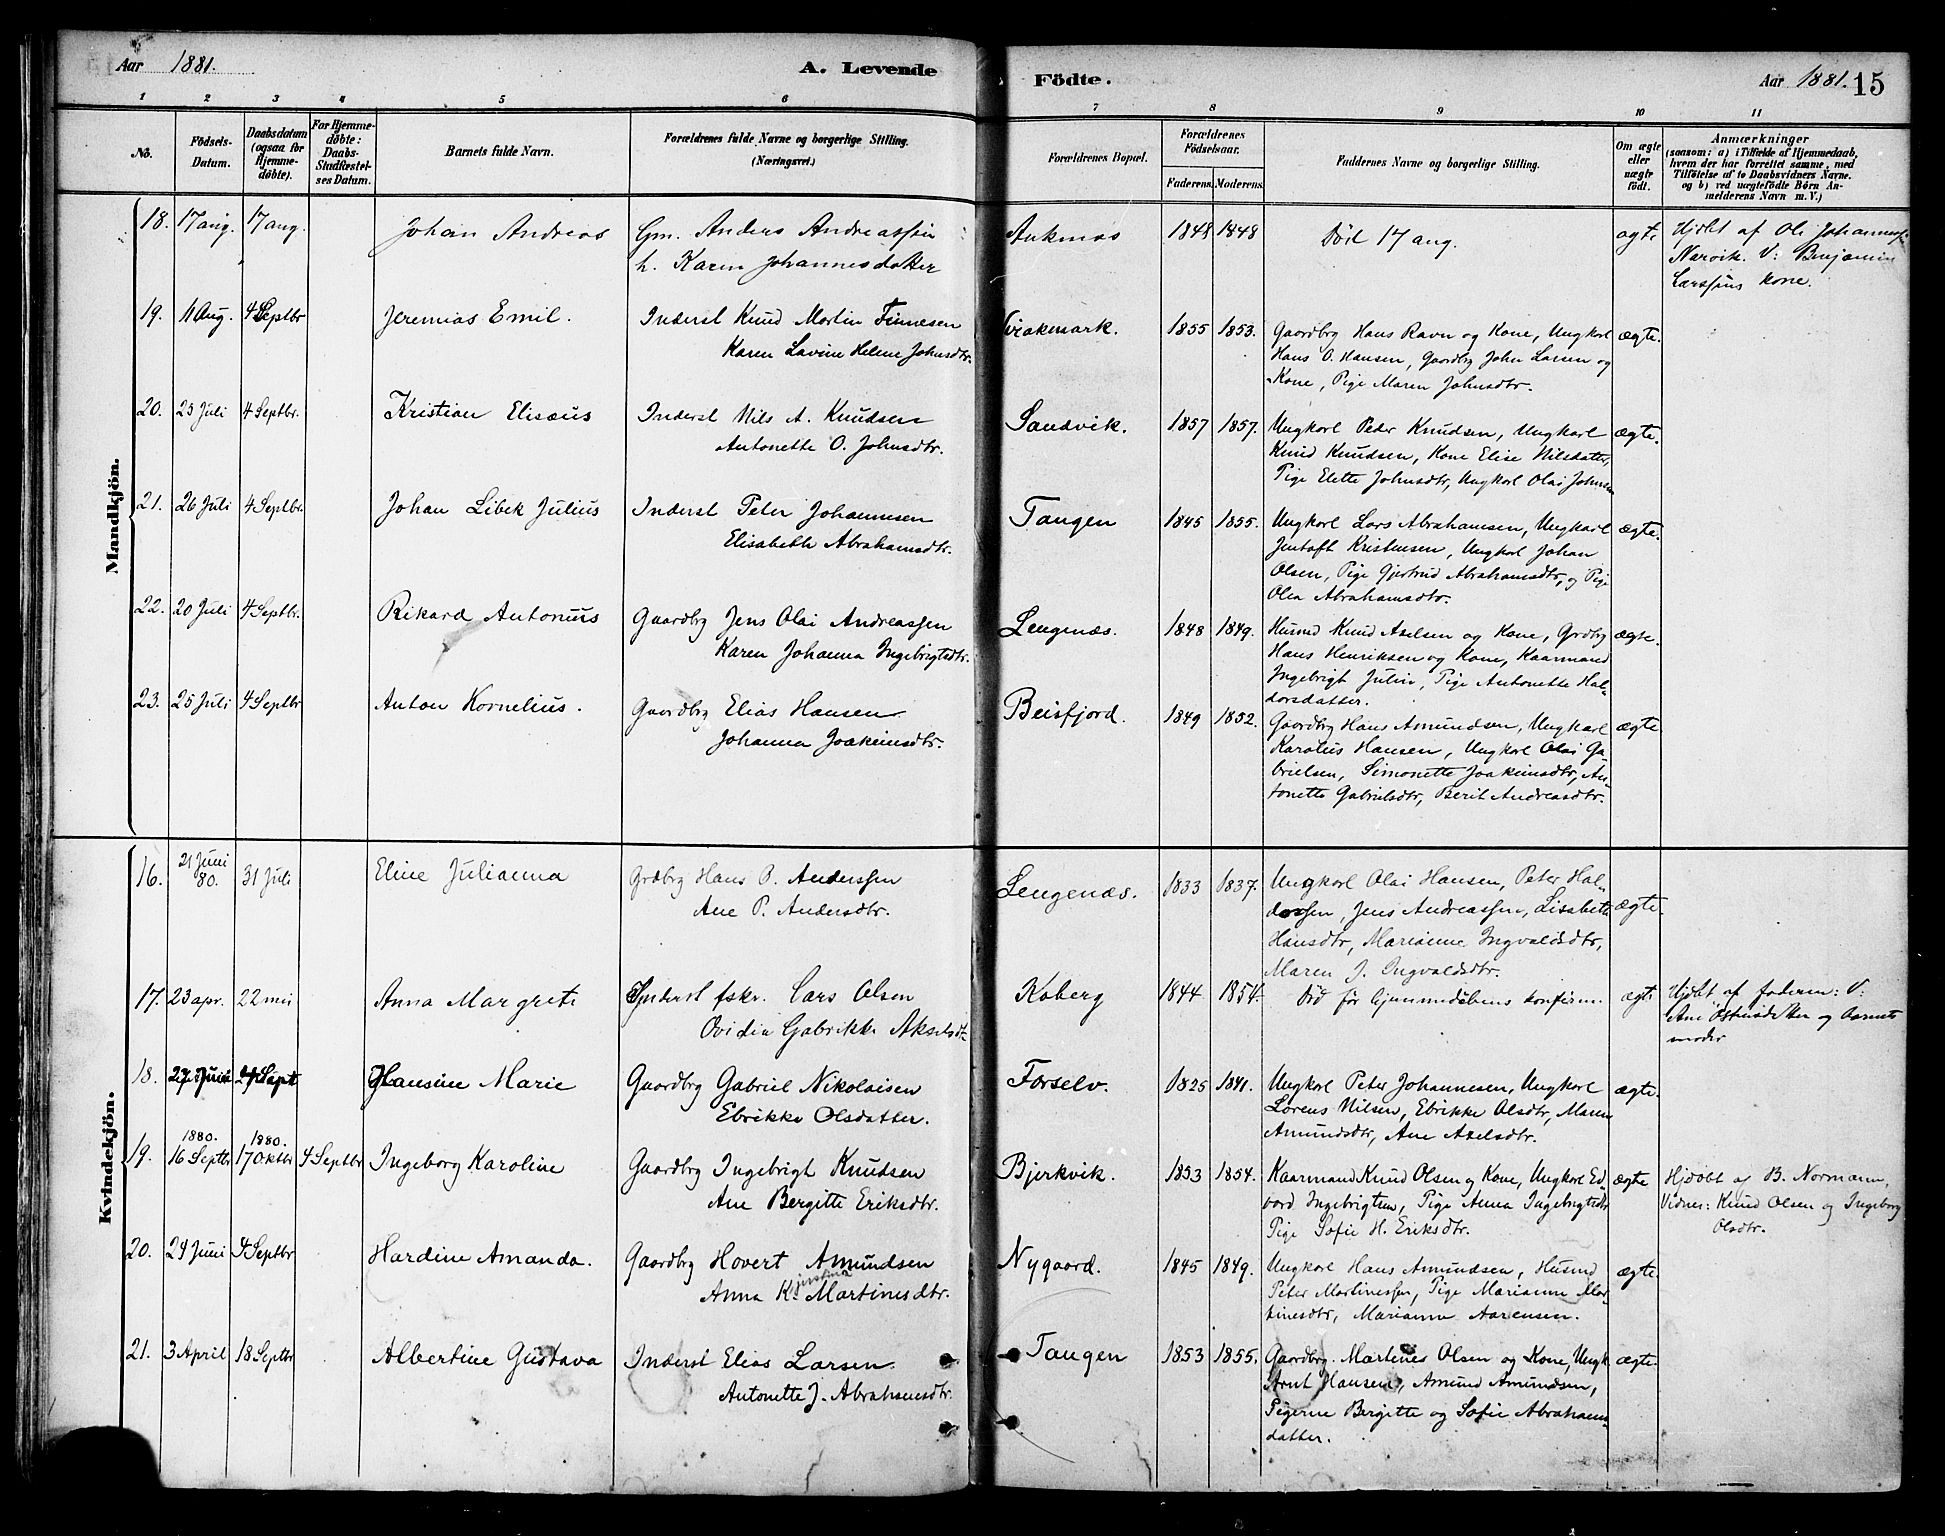 Aar 1881.
A. Levende
Födte.
Aar 1881. 15
1 2 3 4 5 6 7 8 9 10 11
No.
Fødsels-
Datum.
Daabsdatum
(ogsaa for
Hjemme-
døbte).
For Hjemme-
døbte:
Daabs-
Stadfæstel-
ses Datum.
Barnets fulde Navn.
Forældrenes fulde Navne og borgerlige Stilling.
(Næringsvei.)
Forældrenes Bopæl.
Forældrenes
Fødselsaar.
Faderens. Moderens.
Faddernes Navne og borgerlige Stilling.
Om ægte
eller
uægte
født.
Anmærkninger
(saasom: a) i Tilfælde af Hjemmedaab,
hvem der har forrettet samme, med
Tilføielse af to Daabsvidners Navne.
og b) ved uægtefødte Børn An-
melderens Navn m. V.)
Mandkjön.
18. 17 aug. 17 aug. Johan Andreas Gm. Anders Andreassen
h. Karen Johannesdatter
Ankenæs 1848 1848 Död 17 aug. ægte
Hjdbt af Ole Johanness.
Narvik. V: Benjamin
Larssens kone.
19. 11 Aug. 4 Septbr Jeremias Emil. Inderst Knud Martin Finnesen
Karen Lavine Helene Johnsdtr.
Virakmark. 1855 1853. Gaardbrg Hans Ravn og Kone, Ungkarl ægte.
Hans O. Hansen, Gaardbrg John Larsen og
Kone, Pige Maren Johnsdtr.
20. 23 Juli 4 Septbr. Kristian Elisæus Inderst Nils A. Knudsen
Antonette O. Johnsdtr.
Sandvik. 1857 1857. Ungkarl Peder Knudsen, Ungkarl ægte.
Knud Knudsen, Kone Elise Nilsdatter,
Pige Elette Johnsdtr, Ungkarl Olai Johnsen
21. 26 Juli 4 Septbr. Johan Libek Julius Inderst Peter Johannesen
Elisabeth Abrahamsdtr.
Tangen 1845 1855. Ungkarl Lars Abrahamsen, Ungkarl ægte.
Jentoft Kristensen, Ungkarl Johan
Olsen, Pige Gjertrud Abrahamsdtr, og Pige
Olea Abrahamsdtr.
22. 20 Juli 4 Septbr. Rikard Antonius Gaardbrg Jens Olai Andreassen
Karen Johanna Ingebrigtsdtr.
Lengenæs. 1848 1849. Husmd Knud Axelsen og Kone, Grdbrg ægte.
Hans Henriksen og Kone, Kaarmand
Ingebrigt Julin, Pige Antonette Hal-
dorsdatter.
23. 25 Juli 4 Septbr Anton Kornelius. Gaardbrg Elias Hansen
Johanna Joakimsdtr.
Beisfjord. 1849 1852. Gaardbrg Hans Amundsen, Ungkarl ægte.
Karolus Hansen, Ungkarl Olai Ga-
brielsen, Simonette Joakimsdtr, An-
tonette Gabrielsdtr, Berit Andreasdtr.
Kvindekjön.
16. 21 Juni 80. 31 Juli Eline Julianna Grdbrg Hans P. Anderssen
Ane P. Andersdtr.
Lengenæs. 1833 1837. Ungkarl Olai Hansen, Peter Hal-
dorsen, Jens Andreassen, Lisabeth ægte.
Hansdtr, Marianne Ingvaldsdtr,
Maren J. Ingvaldsdtr.
17. 23 apr. 22 mai Anna Margrete Inderst fskr. Lars Olsen
Ovidia Gabrikke Akselsdtr
Koberg 1844 1854. Död før hjemmedåbens konfirm. ægte
Hjdbt af faderen: V:
Ane Østensdatter og Barnets
moder
18. 27 Juni 4 Sept Hansine Marie Gaardbrg Gabriel Nikolaisen
Ebrikke Olsdatter.
Forselv. 1825 1841. Ungkarl Peter Johannesen, Ungkarl ægte.
Lorens Nilsen, Ebrikke Olsdtr, Maren
Amundsdtr, Ane Axelsdtr.
19. 1880. 16 Septbr 1880. 17 Oktbr 4 Septbr Ingeborg Karoline Gaardbrg Ingebrigt Knudsen
Ane Bergitte Eriksdtr.
Bjerkvik. 1853 1854. Kaarmand Knud Olsen og Kone, Ungkarl Ed- ægte
vard Ingebrigtsen, Pige Anna Ingebrigtsdtr
Pige Sofie H. Eriksdtr.
Hjdöbt af B. Normann,
Vidner: Knud Olsen og Ingeborg
Olsdtr.
20. 24 Juni 4 Septbr Hardine Amanda. Gaardbrg Hovert Amundsen
Anna Kjerstina Martinesdtr.
Nygaard. 1845 1849. Ungkarl Hans Amundsen, Husmd ægte.
Peter Martinessen, Pige Marianne Mar-
tinesdtr, Marianne Aarensen.
21. 3 April 18 Septbr Albertine Gustava Inderst Elias Larsen
Antonette J. Abrahamsdtr.
Tangen 1853 1855. Gaardbrg. Martines Olsen og Kone, Ungk. ægte.
Arnt Hansen, Amund Amundsen,
Pigerne Bergitte og Sofie Abrahams-
datter.